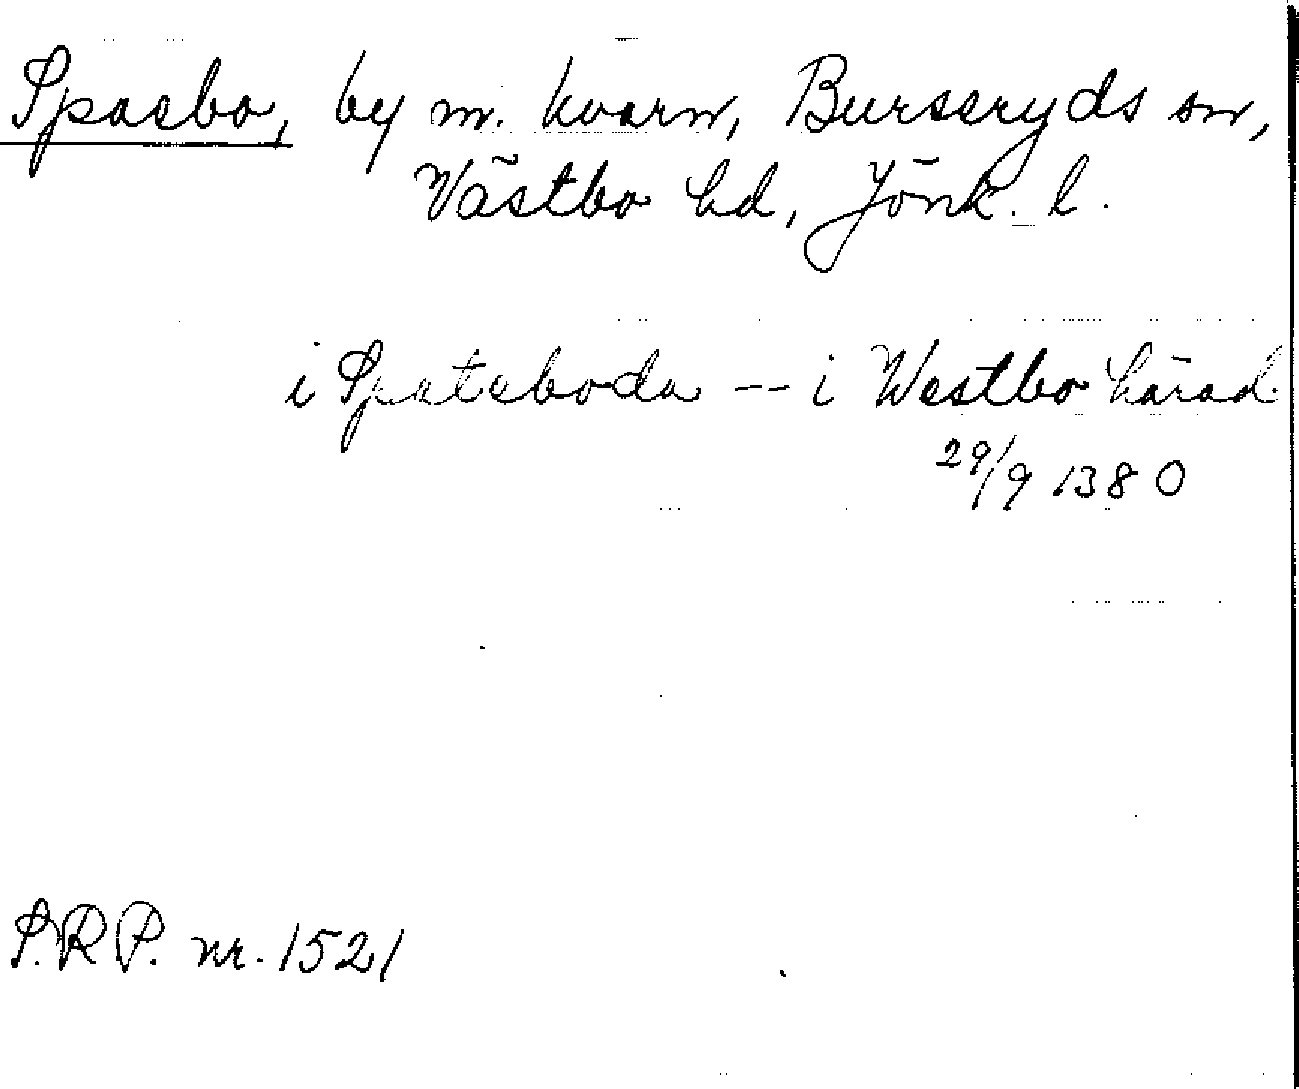 Spasbo, by m. kvarn, Burseryds sn,
Västbo hd, Jönk. l.
i Spatsboda -- i Westbo härad
29/9 1380
S.R.P. nr. 1521